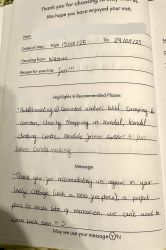 Thank you for choosing to stay
We hope you have enjoyed your visit.
Name
Date of stay: From 15/08/25 To: 29/08/25
Travelling from:
Reason for your trip:
Highlights & Recommended Places
Paddleboarding @ Coniston water, Wild Camping @
Coniston, Charity Shopping in Kendal, Kendal
Climbing Centre,
some candlemaking
Message
Thank you for accomodating us again in your
lovely cottage (with a nice view), a perfect
place to make lots of memories, we can't wait to
come back soon
May we use your message? Y/N